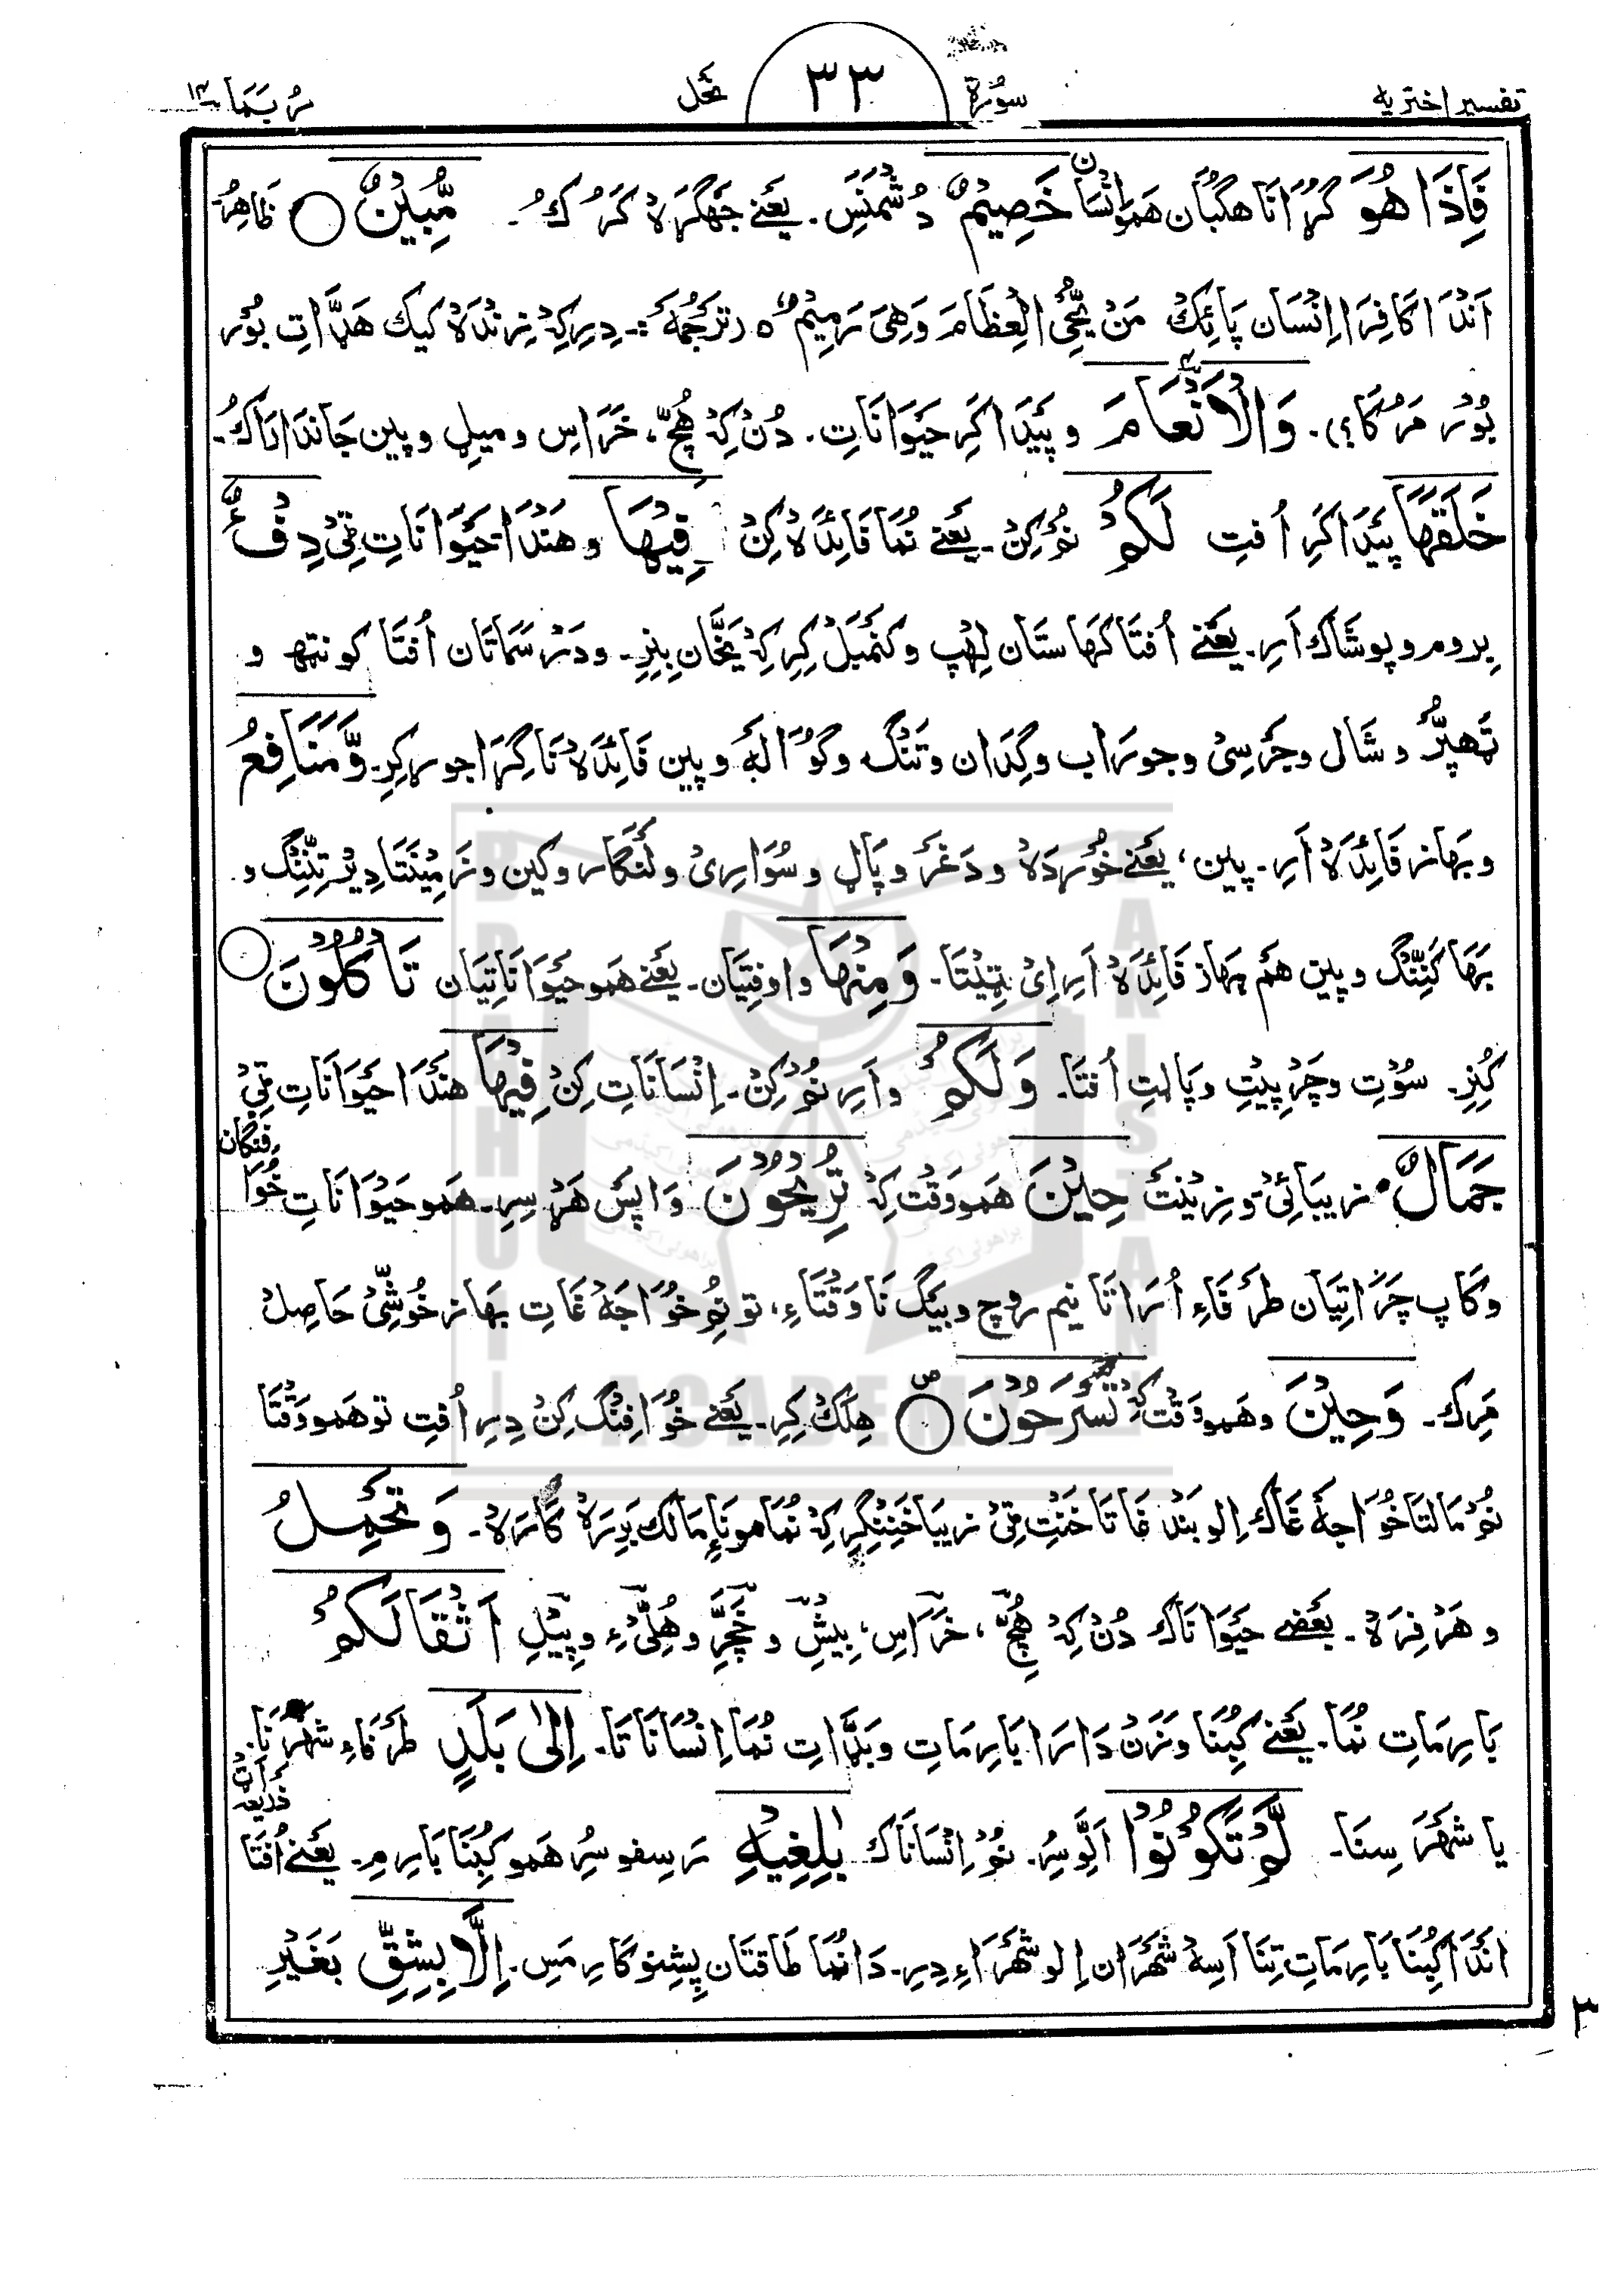 تفسیر اختریه سُوْرَة ٣٣ نَحَل رُبَمَا ١٤
فَاِذَا هُوَ گُڑَا نَا هگبَان هَمو اِنْسَان خَصِیْمٌ دُشْمَنَسِ۔ یَعنے جَهگَرَہ کَرُکُ۔ مُّبِیْنٌ ○ ظَاهِرُ
اَنْدَا کَافِرَا اِنْسَان پَائِکْ مَنْ یُّحْیِ الْعِظَامَ وَهِیَ رَمِیْمٌ ٥ (تَرجُمَه:۔ دِیرکِہْ زِنْدَہ کیک هَڈَّاتِ بُوْر
بُوْر مَرُکَاءِ)۔ وَالْاَنْعَامَ وپَیْدَا کَرِ حَیَوَانَاتِ۔ دُنْ کِہْ هُچّ، خَرَاسِ ومیلِ وپین جَاندَارَاکُ۔
خَلَقَهَا پَیْدَا کَرِ اُفتِ لَکُمْ نُمْ کِنْ۔ یَعنے نُمَا فَائِدَہ کِنْ فِیْهَا و هَنْدَا حَیَوَانَاتِ ٹِیْ دِفْءٌ
بِروم وپوشَاک اَرِ۔ یَعَنے اُفتَا کهَاستَان لِهپ وکَمبَل کِرِ کِہْ یَخَّان بِزِ۔ ودَرْسَمَاتَان اُفتَا کونتهہ و
تَهپَڑ و شَال وجَرْسِیْ وجورَاب وگِدَان وتَنْگ وگُوَالَه وپین فَائِدَہ نَا گِرَا جورکِرِ۔ وَّمَنَافِعُ
وبَهَاز فَائِدَہ اَرِ۔ پین، یَعَنے خُوْردَہ ودَغَر وپَالِ وسُوَارِیْ ولَنگَار وکین وزَمِیْنَتَا دِیْر تِنِّنگ و
بَهَا کَنِّنگ وپین هَم بهاز فَائِدَہ اَرِ اِیْ تِیْتَا۔ وَمِنْهَا واوفِتِیَان۔ یَعنے هَمو حَیَوَانَاتِیَان تَاْکُلُوْنَ ○
کُنِرِ۔ سُوْتِ وچَرْپِیْتِ وپَالتِ اُفتَا۔ وَلَکُمْ واَرِ نُمْ کِنْ۔ اِنْسَانَاتِ کِنْ فِیْهَا هَنْدَا حَیَوَانَاتِ ٹِیْ
جَمَالٌ زیبَائِیْ وزِیْنَتْ حِیْنَ هَمو وَقْت کِہْ تُرِیْحُوْنَ وَاپَس هَڑسِرِ۔ هَمو حَیَوَانَاتِ خُوَافِنگان
وکَاپ چَرَاتِیَان طَرَفَاءِ اُرَاتَا نیم روچ وبیَگ نَا وَقْتَاءِ، تو نُمْ خُوَاجَہ غَاتِ بهَاز خُوشِیْ حَاصِل
مَرِک۔ وَحِیْنَ وهَمو وَقْت کِہْ تَسْرَحُوْنَ ○ هِلَک کِرِ۔ یَعَنے خُوَافِنگ کِنْ دِرِ اُفتِ تو هَمو وَقْتَا
نُمْ مَالتَا خُوَاجَہ غَاک اِلو بَنْدَغَاتَا خَنْتِ ٹِیْ زیبَا خَنِنگِرِ کِہْ نُمَا مونَا مَالک بَدِرَہ کَارَہ۔ وَتَحْمِلُ
و هَرْفِرَہ۔ بَعضے حَیَوَانَاک دُنْ کِہْ هُچّ، خَرَاسِ، بِیْشِ و خَچَّر و هُلِّیْءِ وپِیْلِ اَثْقَالَکُمْ
بَارِمَاتِ نُمَا۔ یَعَنے کُبُنَا وَزَن دَارَا بَارِمَاتِ وبَڈَّاتِ نُمَا اِنْسَانَاتَا۔ اِلٰی بَلَدٍ طَرَفَاءِ شَهَرنَا۔
یا شَهَر سِنَا۔ لَّمْ تَکُوْنُوْا اَلَّوسُرِ۔ نُمْ اِنْسَانَاک بٰلِغِیْهِ رَسِفوسُرِ هَمو کُبُنَا بَارِمِ۔ یَعَنے اُفتَا ذَرِیعَه اٹ
اَنْدَا کُبُنَا بَارِمَاتِ تِنَا اَسِہْ شَهَرَان اِلو شَهَرَاءِ دِرِ۔ دَا نُمَا طَاقتَان پِشِنو کَارِمَسِ۔ اِلَّا بِشِقِّ بَغَیْرِ
٣